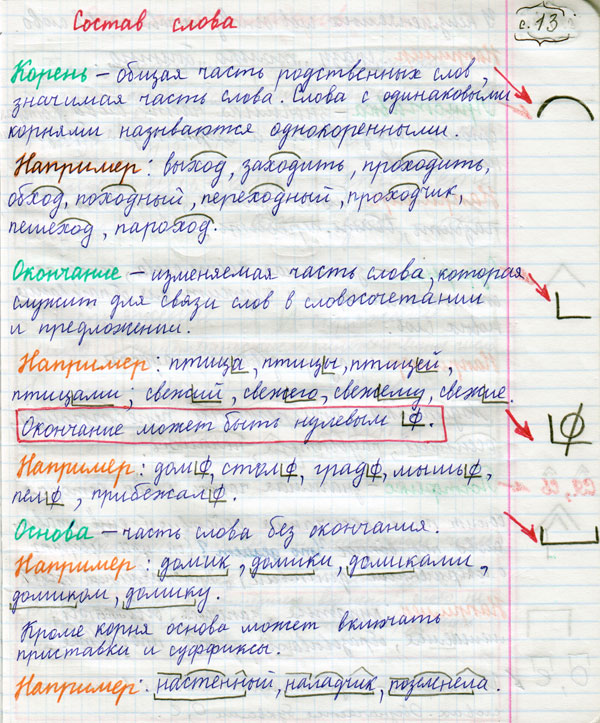 Состав слова
с. 13
Корень – общая часть родственных слов,
значимая часть слова. Слова с одинаковыми
корнями называются однокоренными.
Например: выход, заходить, проходить,
обход, походный, переходный, проходчик,
пешеход, пароход.
Окончание – изменяемая часть слова, которая
служит для связи слов в словосочетании
и предложении.
Например: птица, птицы, птицей,
птицами, свежий, свежего, свежему, свежие.
Окончание может быть нулевым ∅.
Например: дом∅, стол∅, град∅, мышь∅,
пел∅, прибежал∅.
Основа – часть слова без окончания.
Например: домик, домики, домиками,
домиком, домику.
Кроме корня основа может включать
приставки и суффиксы.
Например: настенный, наладчик, позеленела.